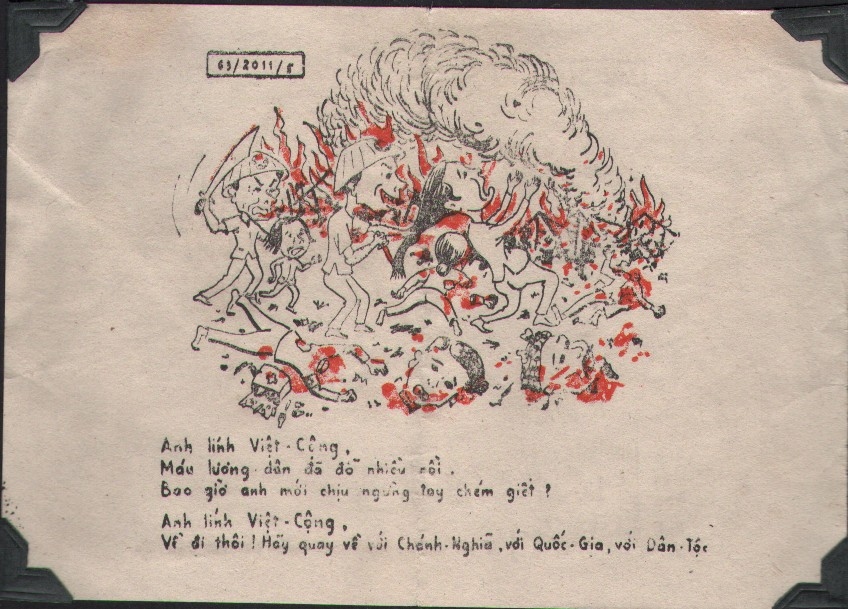 63/2011/8
Anh lính Việt-Cộng,
Máu lương dân đã đổ nhiều rồi.
Bao giờ anh mới chịu ngừng tay chém giết ?
Anh lính Việt-Cộng,
Về đi thôi ! Hãy quay về với Chánh-Nghĩa, với Quốc-Gia, với Dân-Tộc